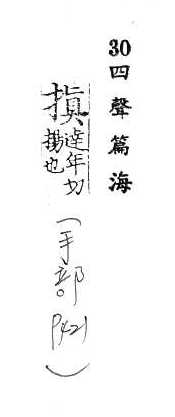 30 四聲篇海
搷 達年切 揚也
(手部 P421)